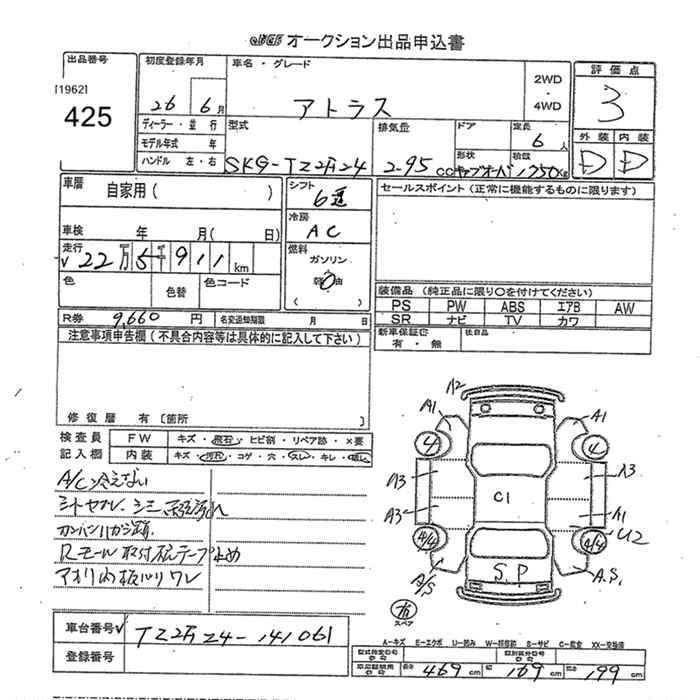 オークション出品申込書
出品番号 初度登録年月 車名・グレード 評価点
[19621] 26 6月 アトラス 2WD・4WD 3
425 ディーラー・並行 型式 排気量 ドア 定員 6人 外装 内装
モデル年式 年 形状 積載 D D
ハンドル 左・右 SKG-TZ2F24 2-95 cc キャブオーバ 1,250Kg
車歴 自家用( ) シフト 6速 セールスポイント(正常に機能するものに限ります)
車検 年 月( 日) 冷房 AC
走行 22万5千911km 燃料 ガソリン
軽油
( )
色 色替 色コード 装備品(純正品に限り○を付けてください)
PS PW ABS エアB AW
R券 9,660 円 名変通知期限 月 日 SR ナビ TV カワ
注意事項申告欄(不具合内容等は具体的に記入して下さい) 新車保証書 有・無 社自品
修復歴 有〔箇所 〕
検査員 FW キズ・飛石・ヒビ割・リペア跡・×要
記入欄 内装 キズ・汚れ・コゲ・穴・スレ・キレ・
A/C冷えない
Rモール取付 テープ止め
アオリ内板 ワレ
A2
A1 A1
4 4
A3 A3
C1
A3 A1
U2
A/4 A/4
A/S S.P A.S.
スペア
車台番号 TZ2F24-141061
登録番号
A-キズ E-エクボ U-凹み W-補修跡 S-サビ C-腐食 XX-交換済
型式指定番号 類別区分番号
長さ 469cm 幅 169cm 高さ 199cm